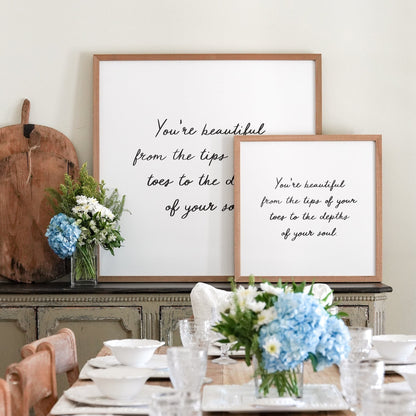 You're beautiful
from the tips
toes to the
of your
You're beautiful
from the tips of your
toes to the depths
of your soul.